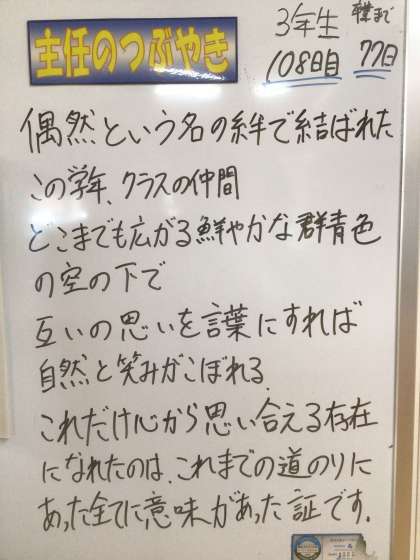 主任のつぶやき
3年生 卒業まで
108日目 77日
偶然という名の絆で結ばれた
この学年、クラスの仲間
どこまでも広がる鮮やかな群青色
の空の下で
互いの思いを言葉にすれば
自然と笑みがこぼれる。
これだけ心から思い合える存在
になれたのは、これまでの道のりに
あった全てに意味があった証です。